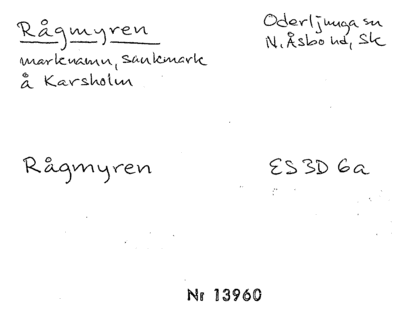 Rågmyren
Oderljunga sn
N. Åsbo hd, Sk
marknamn, sankmark
å Karsholm
Rågmyren
ES3D 6a
Nr 13960